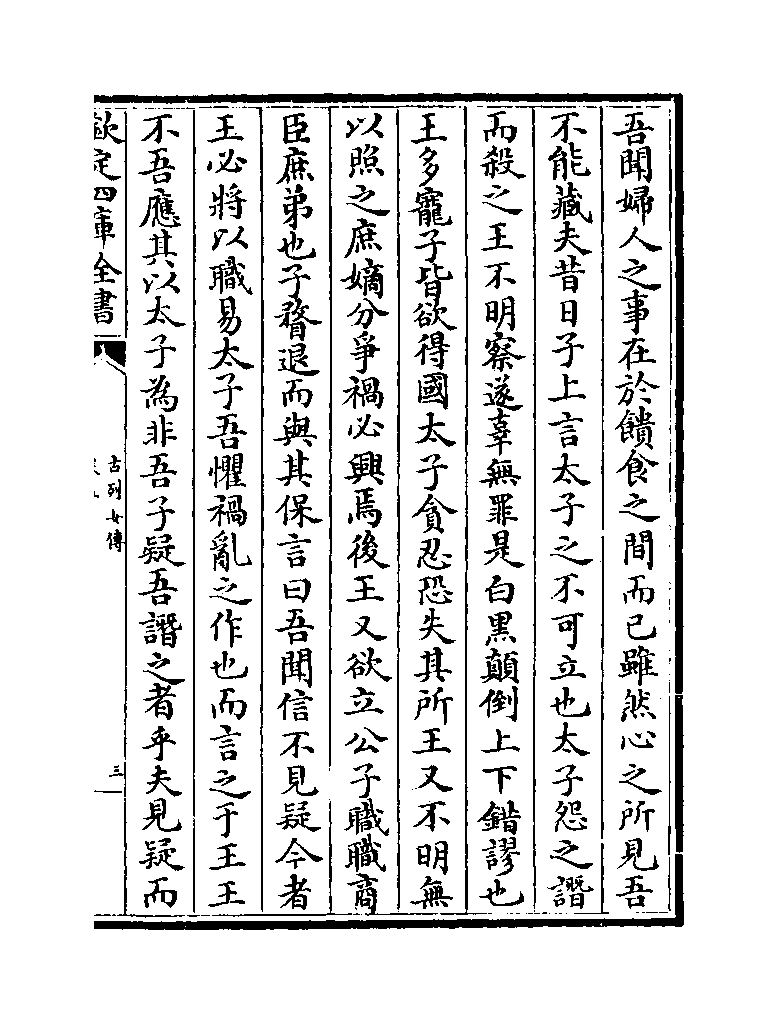 吾聞婦人之事在於饋食之間而已雖然心之所見吾
不能藏夫昔日子上言太子之不可立也太子怨之譖
而殺之王不明察遂辜無罪是白黑顛倒上下錯謬也
王多寵子皆欲得國太子貪忍恐失其所王又不明無
以照之庶嫡分爭禍必興焉後王又欲立公子職職商
臣庶弟也子瞀退而與其保言曰吾聞信不見疑今者
王必將以職易太子吾懼禍亂之作也而言之于王王
不吾應其以太子為非吾子疑吾譖之者乎夫見疑而
欽定四庫全書
古列女傳
三